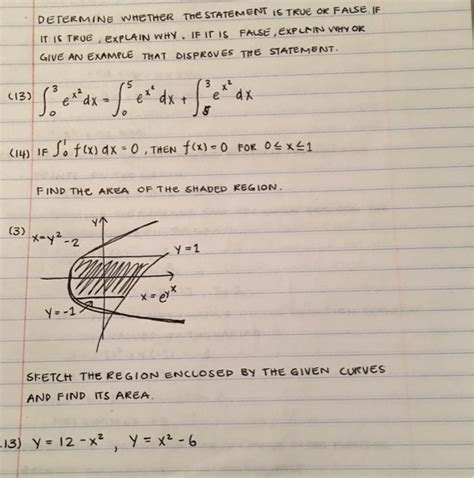 DETERMINE WHETHER THE STATEMENT IS TRUE OR FALSE. IF
IT IS TRUE, EXPLAIN WHY. IF IT IS FALSE, EXPLAIN WHY OR
GIVE AN EXAMPLE THAT DISPROVES THE STATEMENT.
(13) ∫₀³ e^x² dx = ∫₀⁵ e^x² dx + ∫₅³ e^x² dx
(14) IF ∫₀¹ f(x) dx = 0, THEN f(x) = 0 FOR 0 ≤ x ≤ 1
FIND THE AREA OF THE SHADED REGION.
(3)
y
x = y² - 2
y = 1
x = e^y
x
y = -1
SKETCH THE REGION ENCLOSED BY THE GIVEN CURVES
AND FIND ITS AREA.
13) y = 12 - x² , y = x² - 6